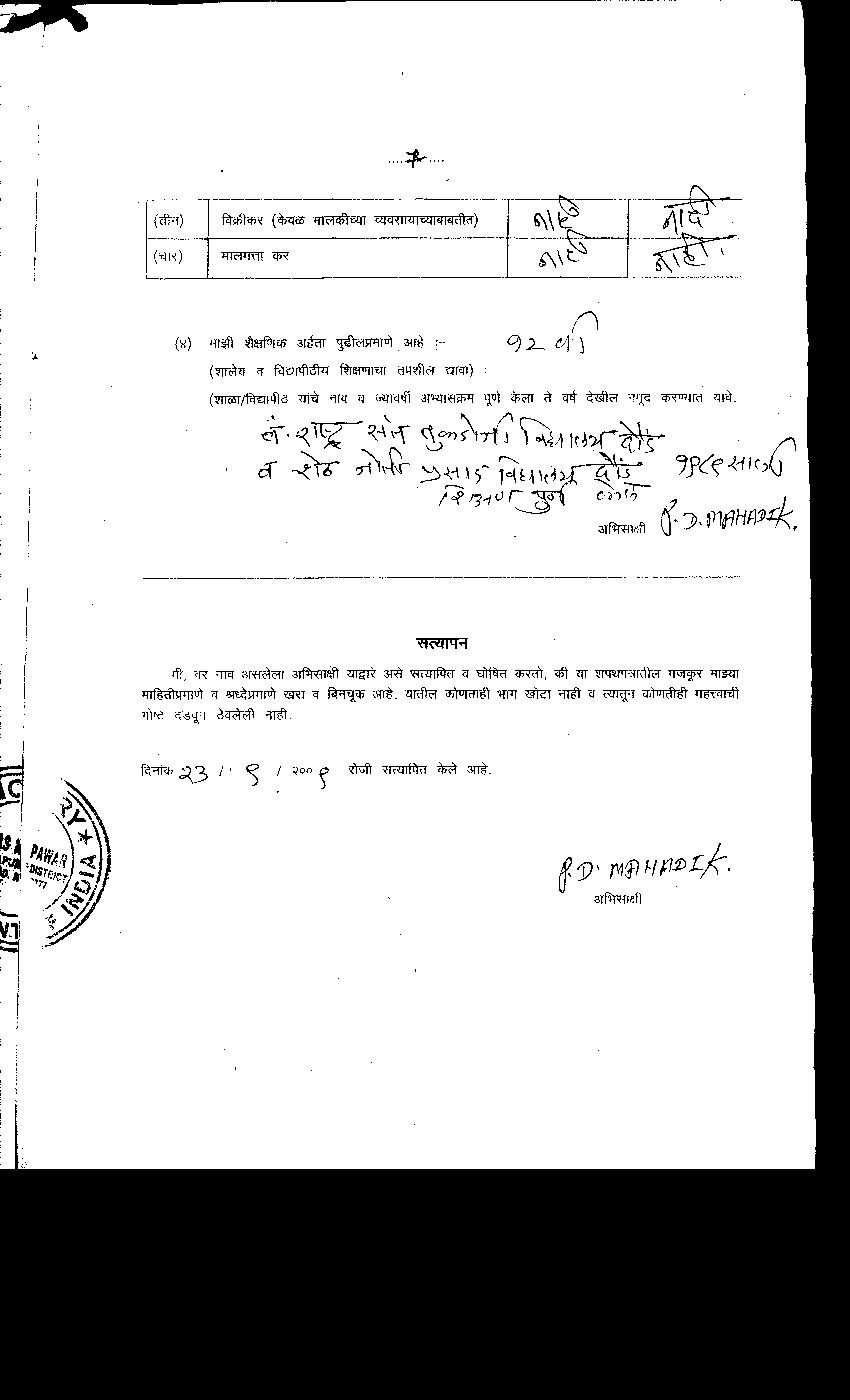 .....7.....
(तीन) विक्रीकर (केवळ मालकीच्या व्यवसायाच्याबाबतीत) नाही नाही
(चार) मालमत्ता कर नाही नाही.
(४) माझी शैक्षणिक अर्हता पुढीलप्रमाणे आहे :- १२ वी
(शालेय व विद्यापीठीय शिक्षणाचा तपशील द्यावा) :
(शाळा/विद्यापीठ यांचे नाव व ज्यावर्षी अभ्यासक्रम पूर्ण केला ते वर्ष देखील नमूद करण्यात यावे.
राष्ट्र संत तुकडोजी विद्यालय दौंड
व शेठ जोती प्रसाद विद्यालय दौंड १९८९ साली
शिक्षण पुर्ण केले
अभिसाक्षी P. D. MAHADIK.
सत्यापन
मी, वर नाव असलेला अभिसाक्षी याद्वारे असे सत्यापित व घोषित करतो, की या शपथपत्रातील मजकूर माझ्या
माहितीप्रमाणे व श्रध्देप्रमाणे खरा व बिनचूक आहे. यातील कोणताही भाग खोटा नाही व त्यातून कोणतीही महत्त्वाची
गोष्ट दडवून ठेवलेली नाही.
दिनांक २३ / ९ / २००९ रोजी सत्यापित केले आहे.
PAWAR
DISTRICT
INDIA
P. D. MAHADIK.
अभिसाक्षी